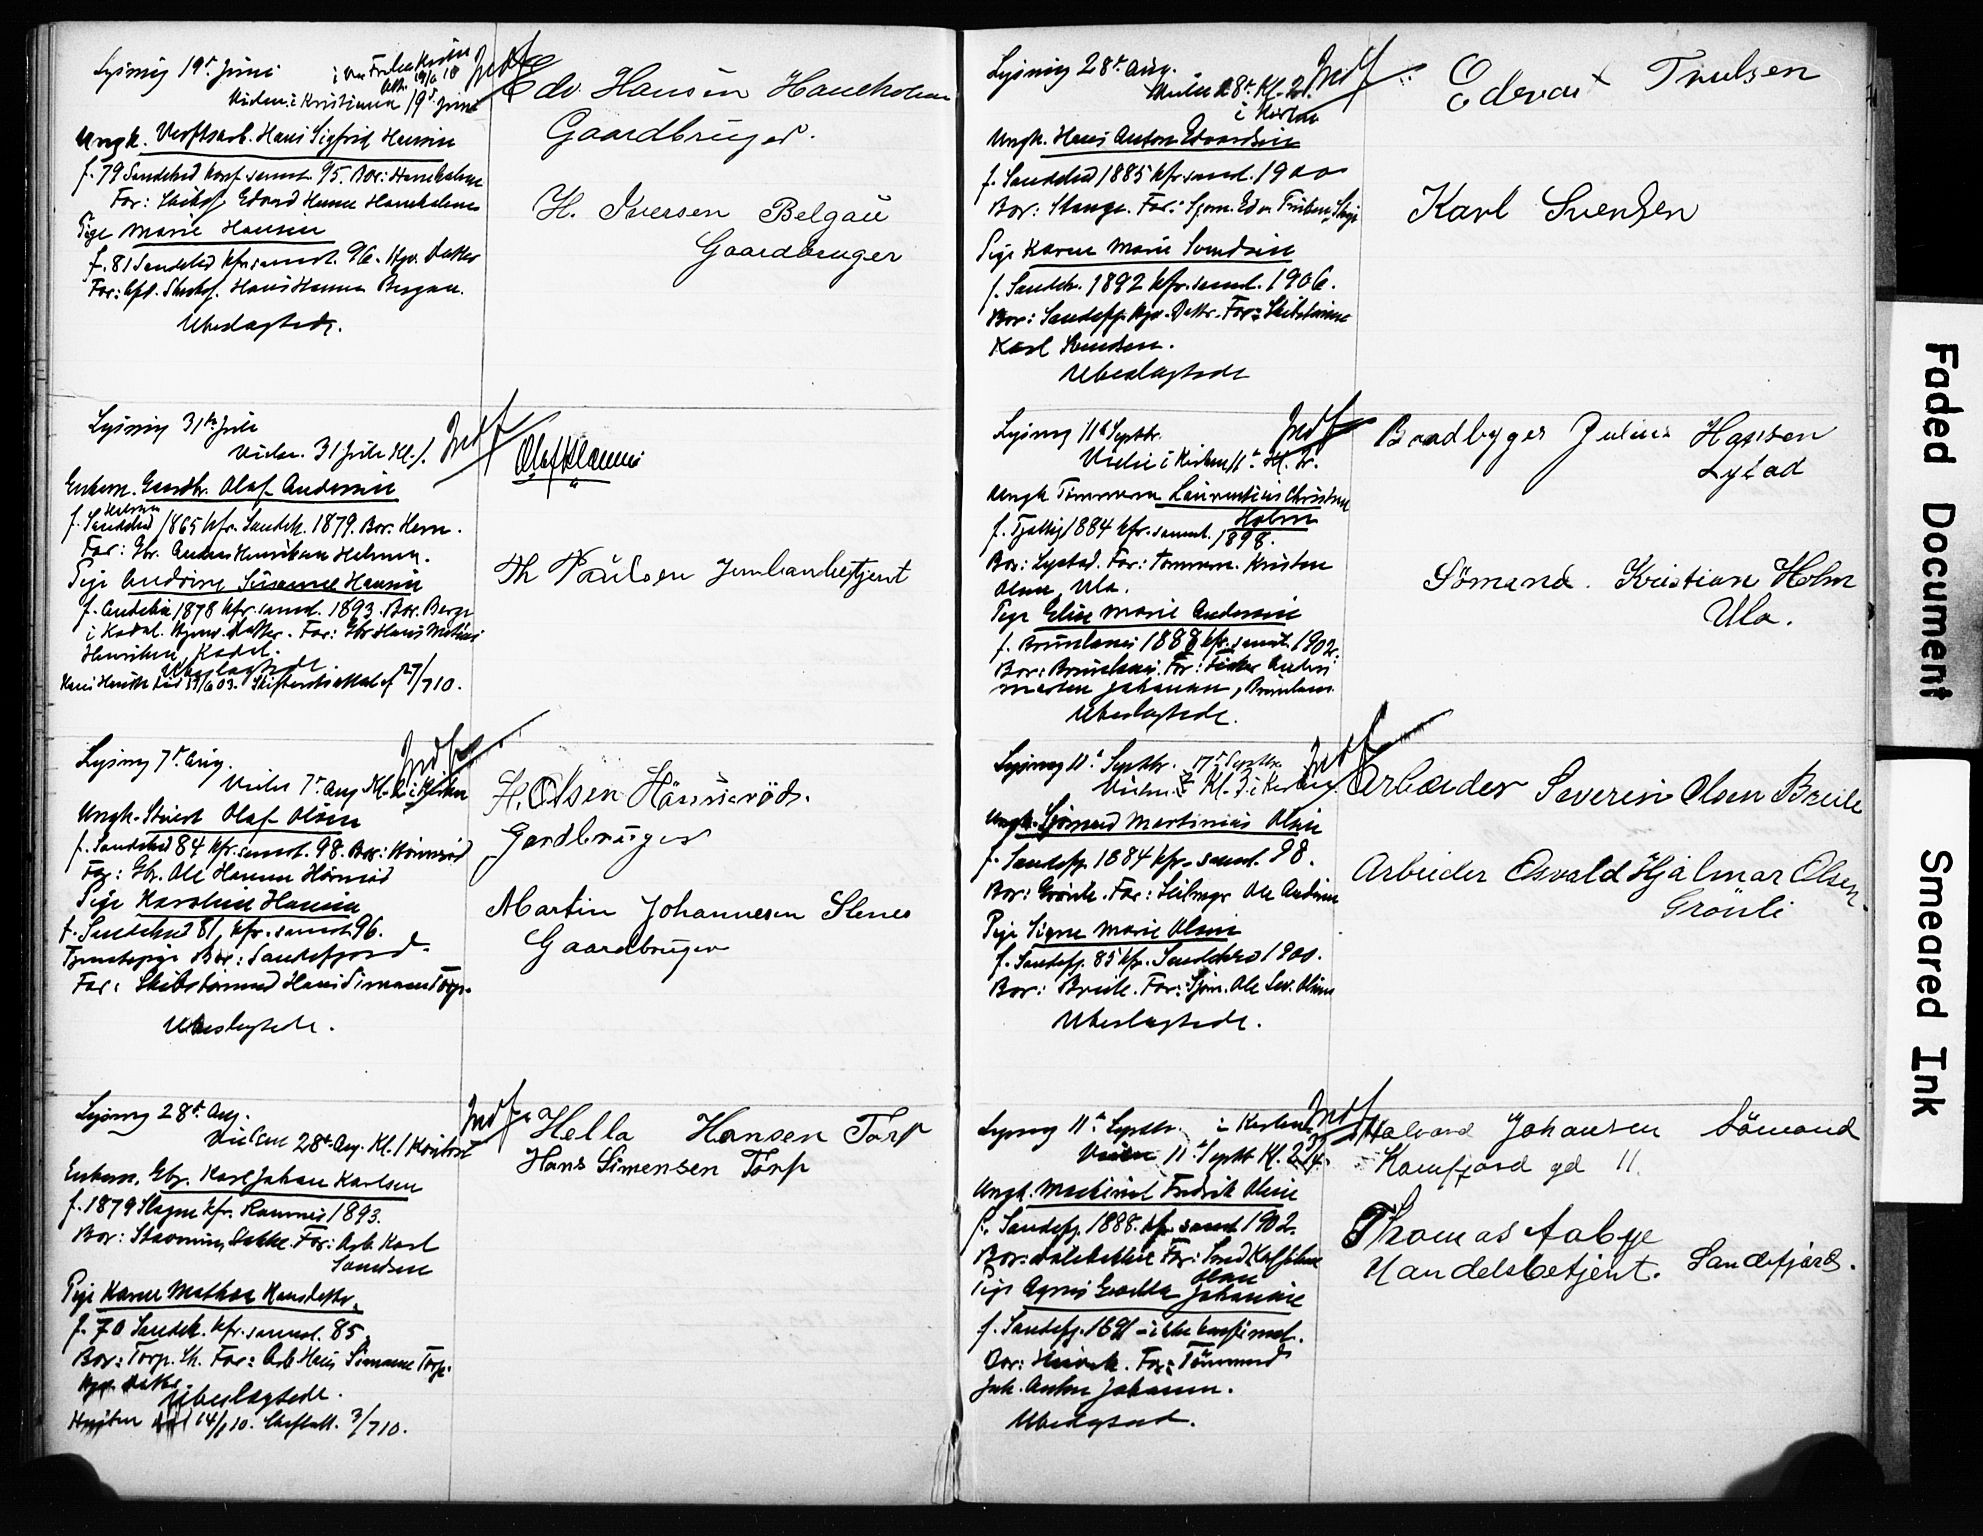 Lysning 19de Juni
Vielse i Kristiania 19de Juni
Indf
Ungk. Verftsarb. Hans Sigfrid Hansen
f. 79 Sandehed konf. samst. 95. Bor: Haukeholmen
For: Edvard Hansen Haukeholmen
Pige Marie Hansen
f. 81 Sandehed kfr. samst. 96. Hjv. Datter
For: Hans Hansen Bergan.
Ubeslægtede.
Edv Hansen Haukholmen
Gaardbruger.
H. Iversen Belgau
Gaardbruger
Lysning 31te Juli
Vielse. 31 Juli Kl. 1.
Indf
Enkem. Gaardbr. Olaf Andersen
f. 1865 kfr. Sandeh. 1879. Bor: Hem.
For: Gbr. Anders Henriksen
Pige Andrine Susanne Hansen
f. Andebu 1878 kfr. samst. 1893. Bor. Berge
i Kodal. Hjemv. Datter. For: Gbr Hans Mathias
Henriksen, Kodal.
Ubeslægtede.
03. Skifteretsattest af 27/7 10.
Th Paulsen Jernbanebetjent
Lysning 7de Aug.
Vielse 7de Aug Kl. 2 i Kirken
Indf
Ungk. Stuert Olaf Olsen
f. Sandehed 84 kfr. samst. 98. Bor: Hönnerød
For: Gbr. Ole Hansen Hönnerød
Pige Karoline Hansen
f. Sandehed 81, kfr. samst. 96.
Tjenestepige Bor: Sandefjord
For: Skibstömmermand Hans Simonsen Torp.
Ubeslægtede.
H. Olsen Hännerød.
Gardbruger
Martin Johannesen Slenes
Gaardbruger
Lysning 28de Aug.
Vielsen 28de Aug. Kl. 1
Indf
Enkem. Gbr. Karl Johan Karlsen
f. 1879 Slagen kfr. Ramnes 1893.
Bor: Stavnum, Stokke. For: Arb. Karl
Pige Karen Mathea Hansdatter
f. 70 Sandeh. kfr. samst. 85.
Bor: Torp. Sh. For: Arb. Hans Simonsen Torp.
Hjv. Datter.
Ubeslægtede.
Hustru död 14/1 10. Skifteatt. 3/7 10.
Hella Hansen Torp
Hans Simensen Torp
Lysning 28de Aug.
Vielse 28de Kl. 2.
i Kirken
Indf
Ungk. Hans Anton Edvardsen
f. Sandehed 1885 kfr. samst. 1900
Bor: Stange. For: Sjöm. Edv. Trulsen
Pige Karen Marie Svendsen
f. Sandeh. 1892 kfr. samst. 1906.
Bor: Sandefj. Hjv. Datter. For: Skibstömmer
Karl Svendsen.
Ubeslægtede
Edevart Trulsen
Karl Svendsen
Lysning 11te Septbr.
Vielse i Kirken 11te Kl. 2.
Indf
Ungk Tömmerm. Laurentius Christensen
Holm
f. Tjølling 1884 kfr. samst. 1898.
Bor: Lystad. For: Tömmerm. Kristen
Olsen, Ula.
Pige Elise Marie Andersen
f. Brunlanes 1888 kfr. samst. 1902.
Bor: Brunlanes. For: Fisker Anders
Martin Johansen, Brunlanes.
Ubeslægtede.
Baadbyger Julius Hansen
Lystad
Sömand. Kristian Holm
Ula.
Lysning 11te Septbr. 17de Septbr.
Vielse Kl. 3 i Kirken.
Indf
Ungk. Sjømand Martinius Olsen
f. Sandefj. 1884 kfr. samst. 98.
Bor: Grönli. For: Seilmager Ole Andersen
Pige Signe Marie Olsen
f. Sandefj. 85 kfr. Sandehered 1900.
Bor: Breili. For: Sjöm. Ole Sev. Olsen
Ubeslægtede.
Arbeider Severin Olsen Breili
Arbeider Osvald Hjalmar Olsen
Grönli
Lysning 11te Septbr. i Kirken
Vielse 11te Septbr Kl. 2
Indf
Ungk. Fredrik Olsen
f. Sandefj. 1888. kfr. samst. 1902.
Bor: For: Smed Karl Johan
Olsen
Pige Agnes Johansen
f. Sandefj. 1891 – ikke konfirmet.
Bor: For: Tömmerm.
Joh. Anton Johansen.
Ubeslægted.
Halvard Johansen Sömand
Kamfjord gd 11.
Thomas Aabye
Handelsbetjent. Sandefjord.
Faded Document
Smeared Ink